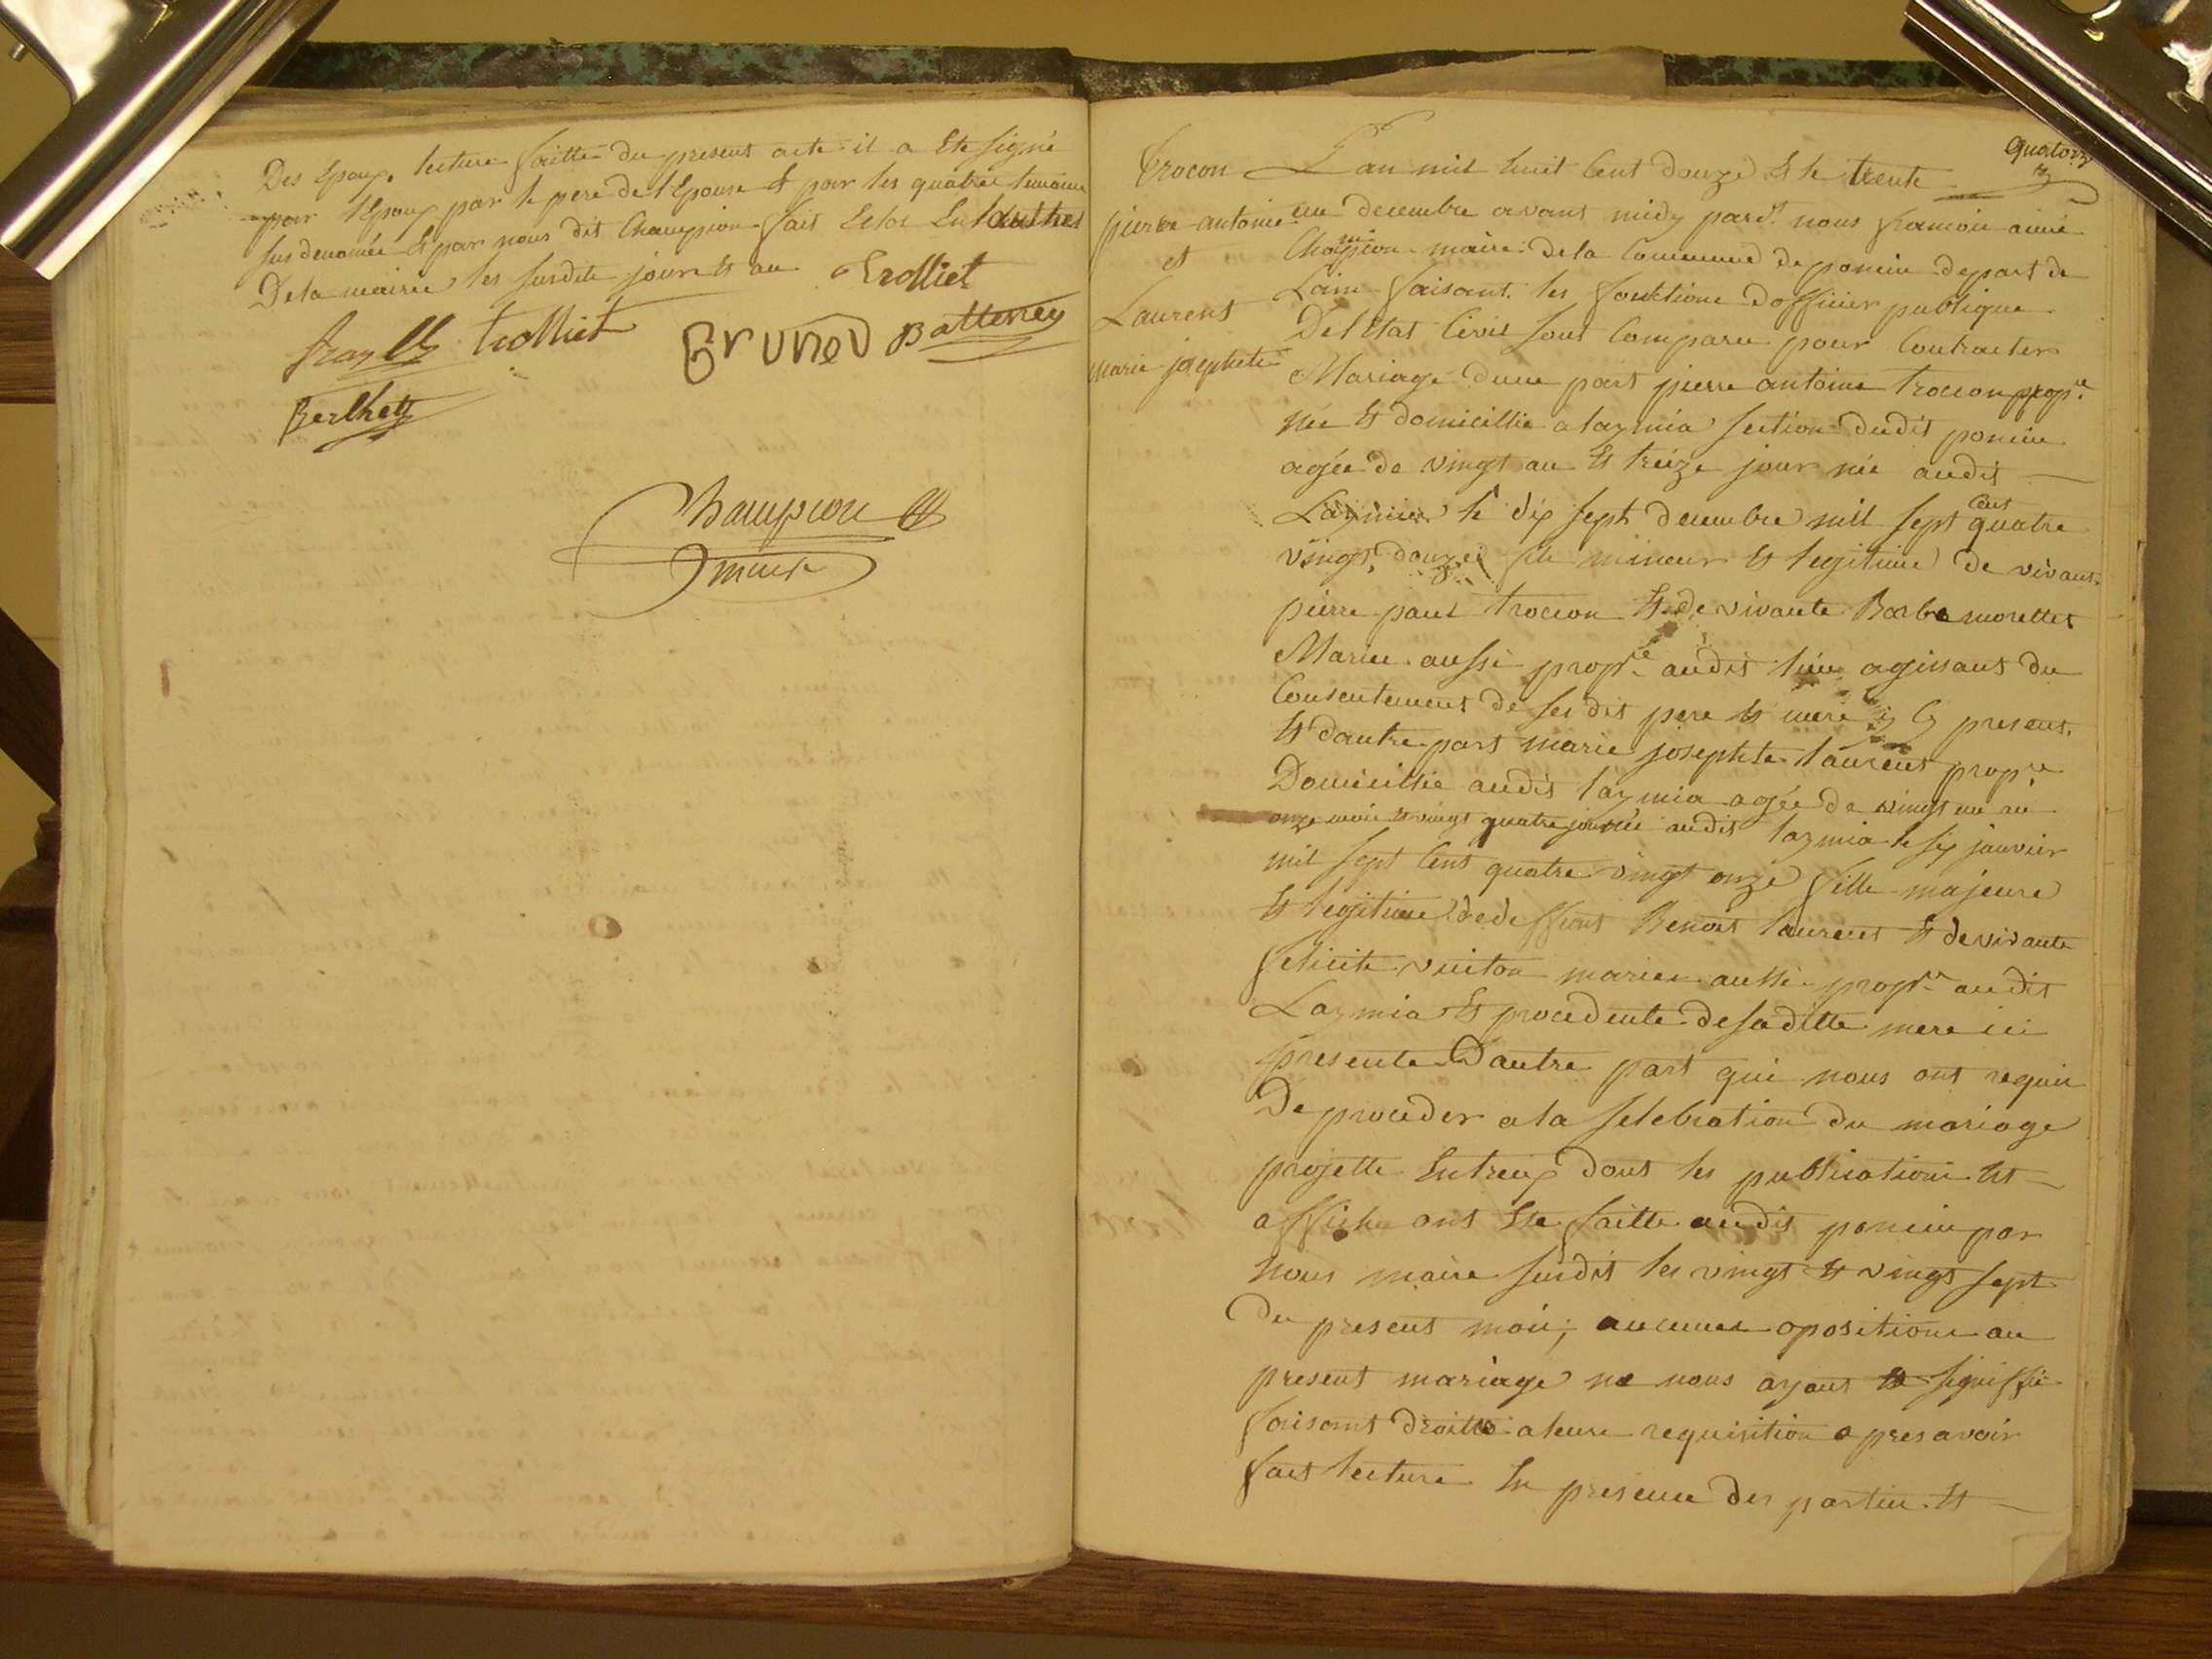 Des Epoux, lecture faitte du present acte il a Ete signé
par l'Epoux par le pere de l'Epouse et par les quatre temoins
susdenomée Et par nous dit Champion fait Et clos
De la mairie les susdits jours et an
trolliet
trolliet
Brunet
Batteney
Berthet
Champion
maire
quatorze
trocon
pierre antoine
et
Laurent
marie josephete
L'an mil huit Cent douze Et le trente
un decembre avant midy pardt nous francois aimé
Champion maire de la Commune de poncin depart de
Lain faisant les fonktions dofficier publique
De l'Etat Civil sont Comparu pour Contracter
Mariage dune part pierre antoine trocon propre
née Et domicillié a laymia section dudit poncin
agée de vingt an Et treize jour née audit
Laymia le dix sept decembre mill sept cent quatre
vingt douze fils mineur Et legitime de vivant
pierre paul trocon Et de vivante Barbe morettet
Mariee aussi propre audit lieu agissant du
Consentement de ses dit pere Et mere y Cy present,
Et dautre part marie josephete laurent propre
Domicillie audit laymia agée de vingt un an
onze mois Et vingt quatre jour née audit laymia le six janvier
mil sept Cent quatre vingt onze fille majeure
Et legitime de deffunt Benoit laurent Et de vivante
felicite vuiton mariee aussi propre audit
Laymia Et procedente de saditte mere ici
presente D'autre part qui nous ont requis
De proceder a la selebration du mariage
projette Entreux dont les publications Et
affiche ont Ete faitte audit poncin par
nous maire susdit les vingt Et vingt sept
Du present mois; aucunes opositions au
present mariage ne nous ayant Et signiffié
faisant droitte a leurs requisition apres avoir
fait lecture En presence des parties Et